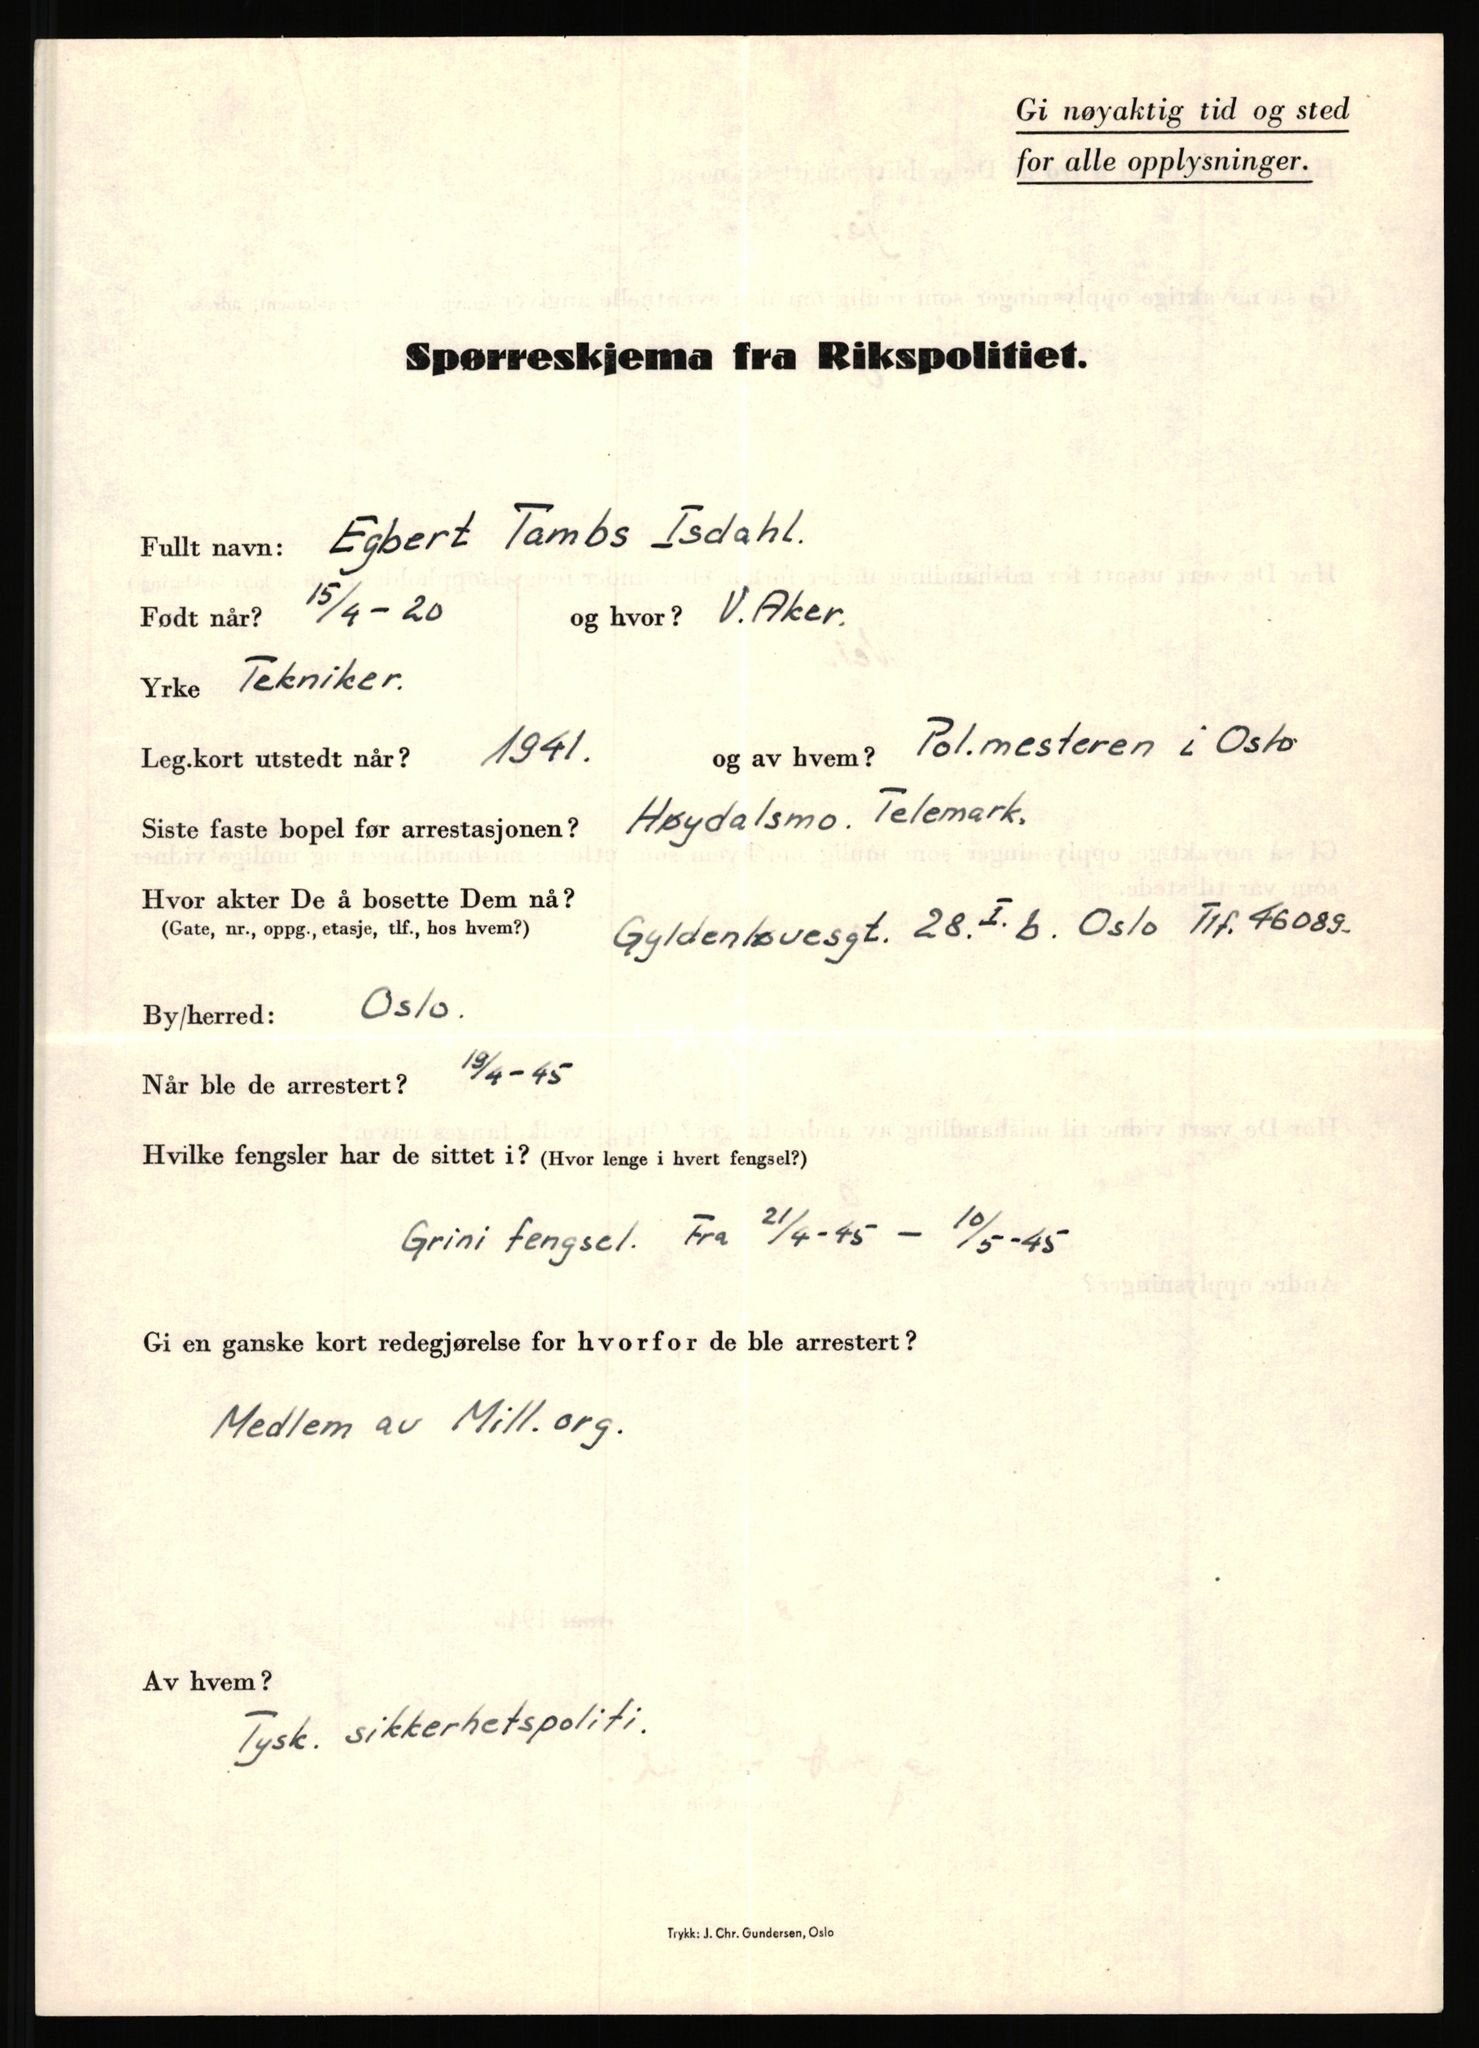 Gi nøyaktig tid og sted
for alle opplysninger.
Spørreskjema fra Rikspolitiet.
Fullt navn: Egbert Tambs Isdahl.
Født når? 15/4-20 og hvor? V. Aker.
Yrke Tekniker.
Leg.kort utstedt når? 1941. og av hvem? Pol.mesteren i Oslo
Siste faste bopel før arrestasjonen? Høydalsmo. Telemark.
Hvor akter De å bosette Dem nå?
(Gate, nr., oppg., etasje, tlf., hos hvem?) Gyldenløvesgt. 28. I. b. Oslo Tlf. 46089.
By/herred: Oslo.
Når ble de arrestert? 19/4-45
Hvilke fengsler har de sittet i? (Hvor lenge i hvert fengsel?)
Grini fengsel. Fra 21/4-45 - 10/5-45
Gi en ganske kort redegjørelse for hvorfor de ble arrestert?
Medlem av Mill.org.
Av hvem?
Tysk. sikkerhetspoliti.
Trykk: J. Chr. Gundersen, Oslo